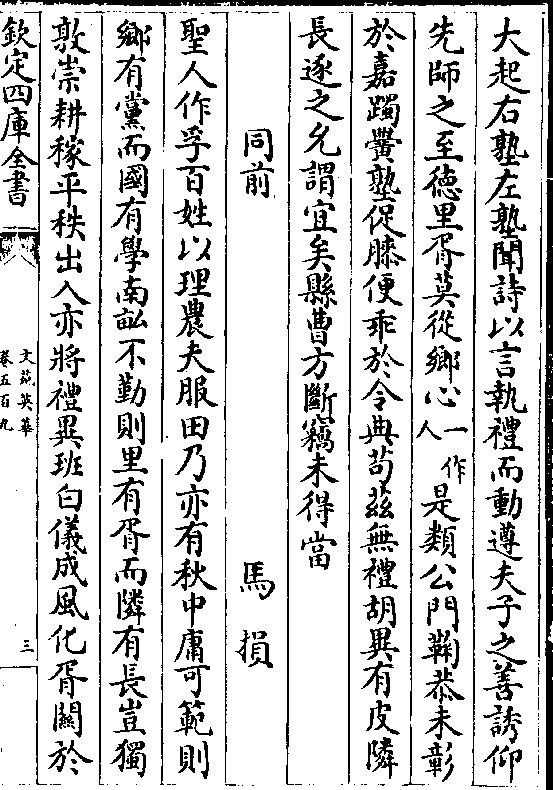 大起右塾左塾聞詩以言執禮而動遵夫子之善誘仰
先師之至德里胥莫從鄉心一作人是類公門鞠恭未彰
於嘉躅黌塾促膝便乖於令典苟茲無禮胡異有皮隣
長逐之允謂宜矣縣曹方斷竊未得當
同前 馬損
聖人作孚百姓以理農夫服田乃亦有秋中庸可範則
鄉有黨而國有學南畝不勤則里有胥而隣有長豈獨
敦崇耕稼平秩出入亦將禮異班白儀成風化胥闗於
欽定四庫全書
文苑英華
卷五百九
三